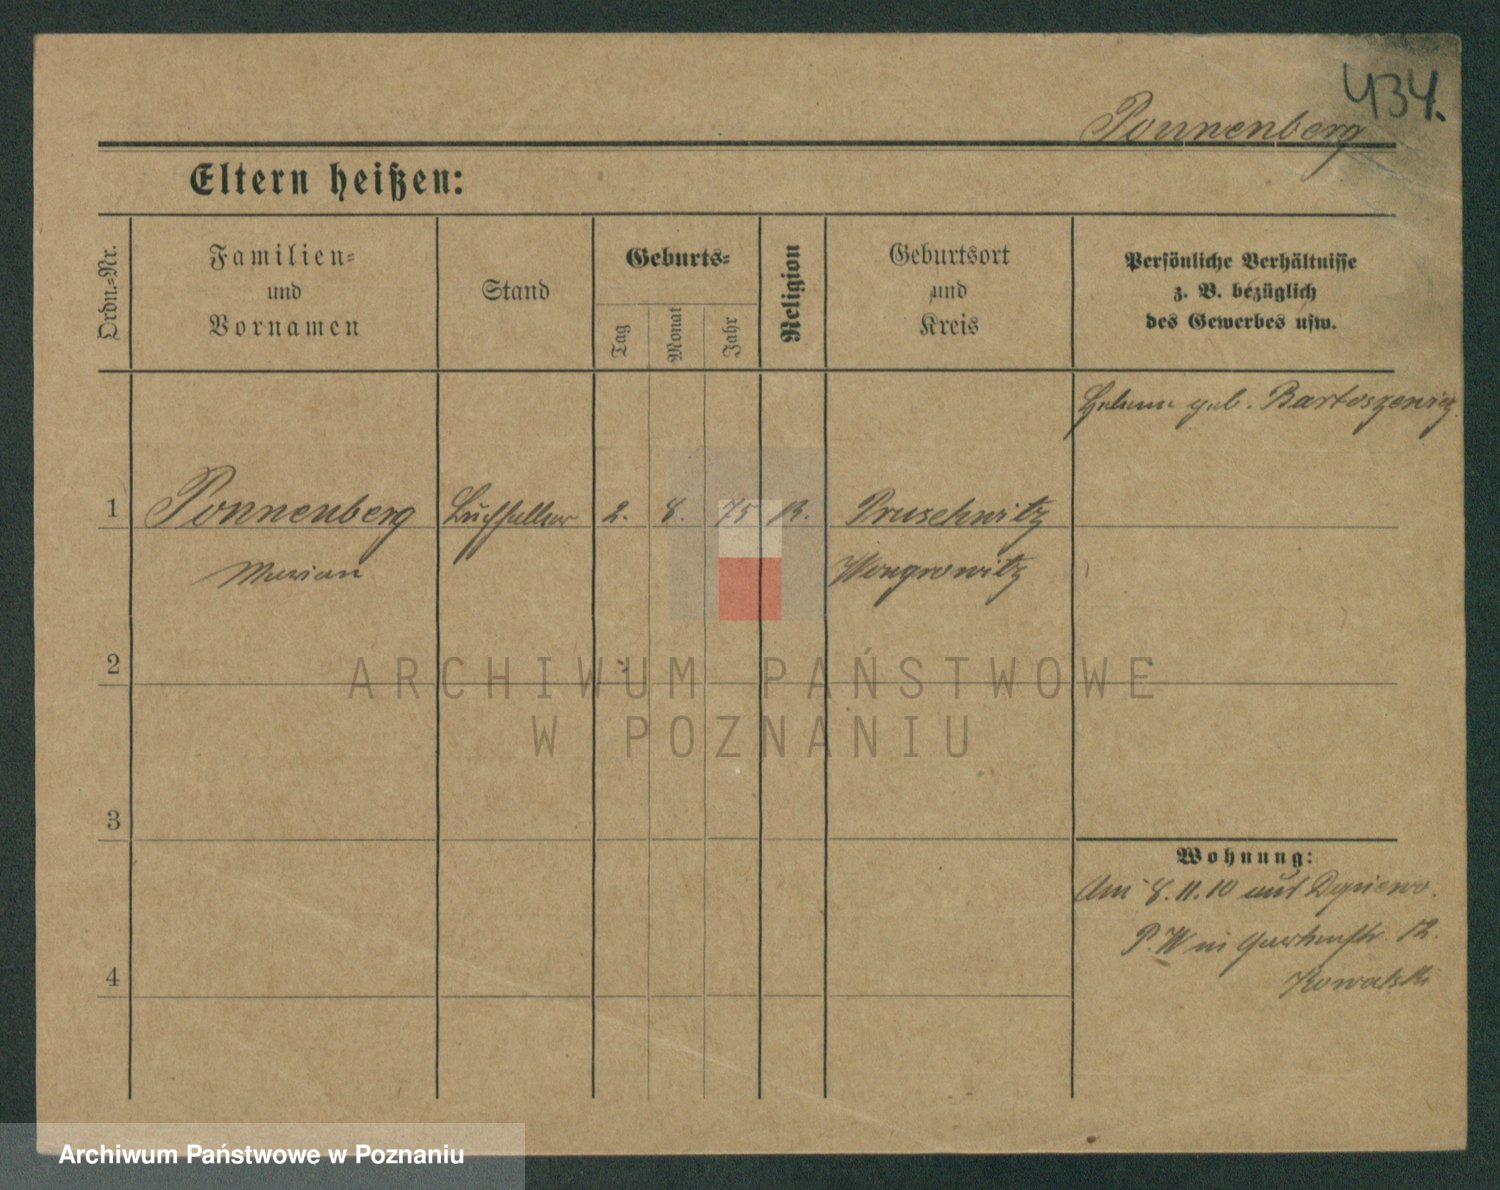 434.
Ponnenberg
Eltern heißen:
Ordn.-Nr.
Familien-
und
Vornamen
Stand
Geburts-
Tag
Monat
Jahr
Religion
Geburtsort
und
Kreis
Persönliche Verhältnisse
z. B. bezüglich
des Gewerbes usw.
geb. Bartoszewicz
1 Ponnenberg 2. 8. 75 K. Pruschwitz
Marian Wongrowitz
2
3
4
Wohnung:
Am 8.11.10 aus
P. W in Gartenstr. 12.
Kowalski
ARCHIWUM PAŃSTWOWE
W POZNANIU
Archiwum Państwowe w Poznaniu